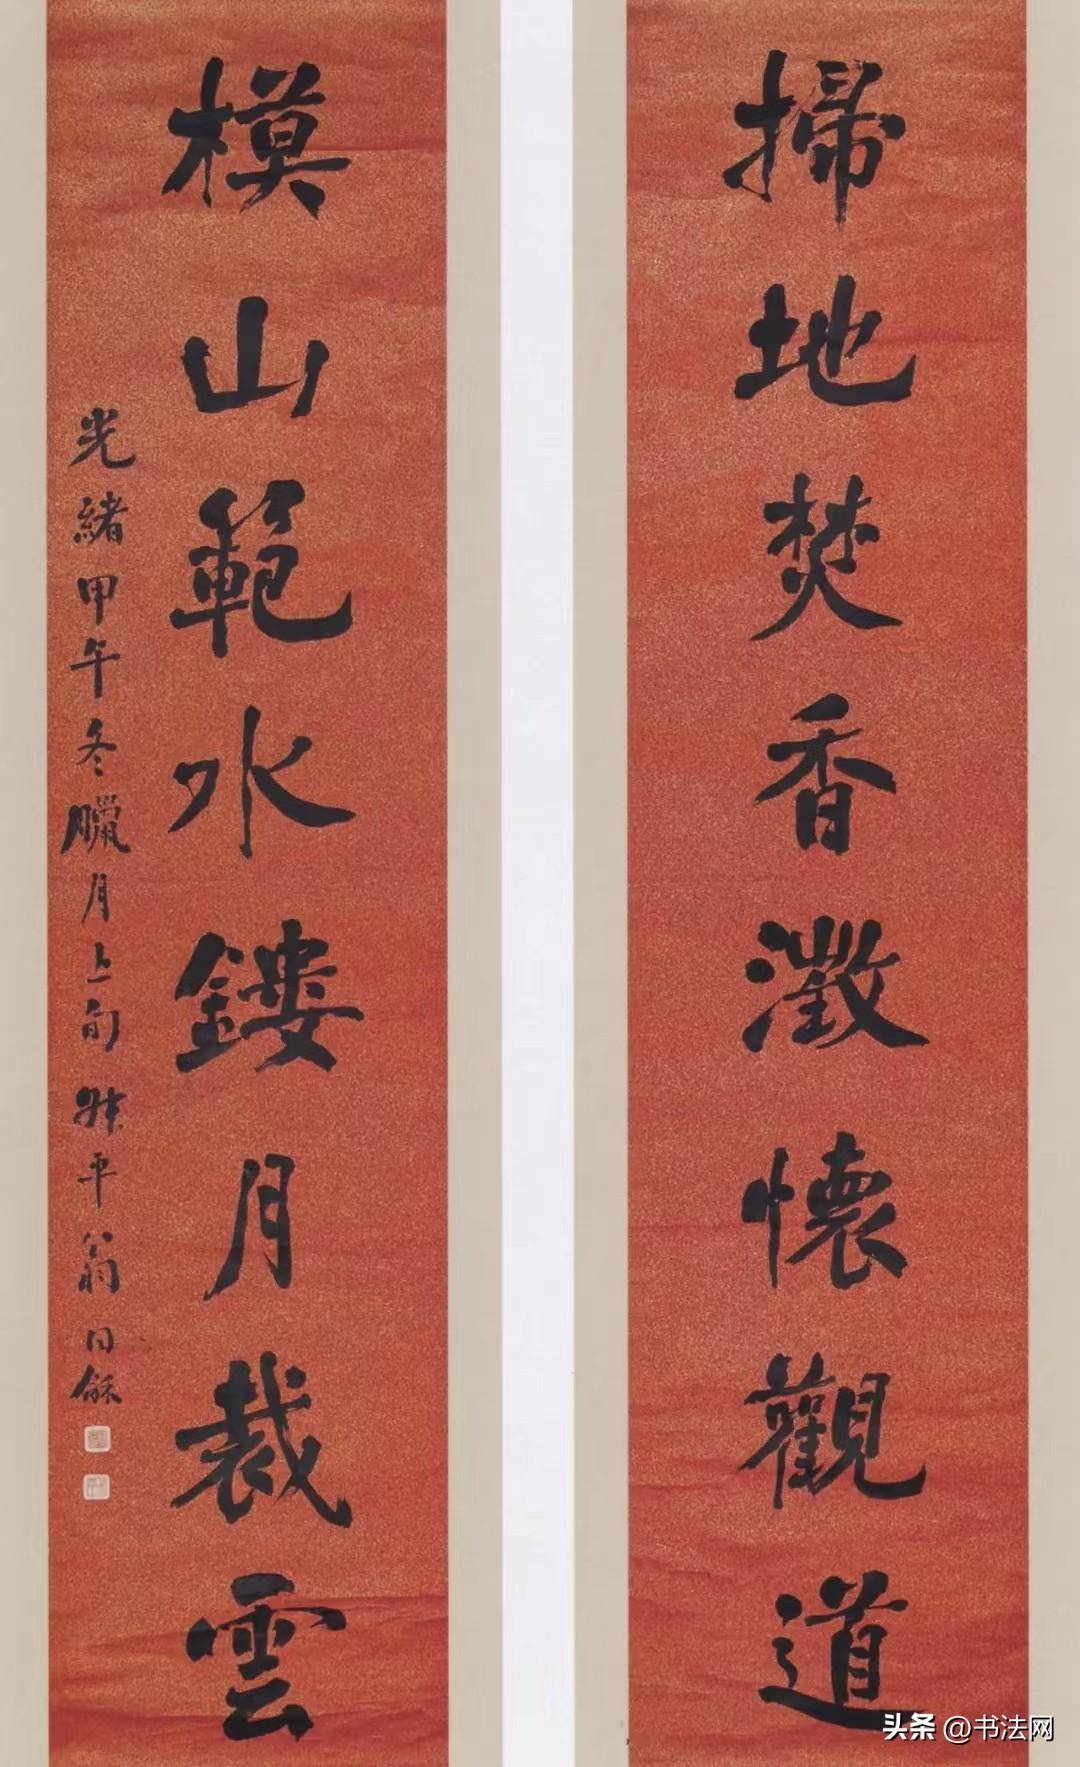 掃地焚香澂懷觀道
模山範水鏤月裁雲
光緒甲午冬臘月上旬
平翁同龢
头条 @书法网